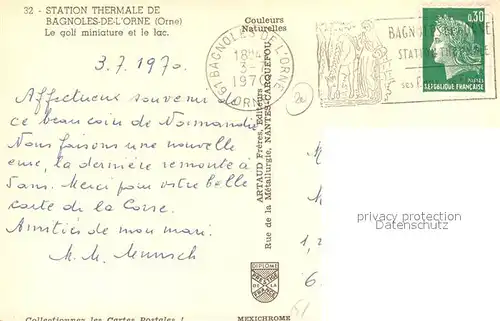 32 - STATION THERMALE DE
BAGNOLES-DE-L'ORNE (Orne)
Le golf miniature et le lac.
Couleurs
Naturelles
3.7.1970.
Affectueux souvenir de
ce beau coin de Normandie
Nous faisons une nouvelle
cure, la dernière remonte à
5 ans. Merci pour votre belle
carte de la Corse.
Amitiés de mon mari.
M. M.
61 BAGNOLES DE L'ORNE
18H45
1970
ORNE
BAGNOLES DE L'ORNE
STATION THERMALE
SES
0,30
POSTES
REPUBLIQUE FRANÇAISE
ARTAUD Frères, Editeurs
Rue de la Métallurgie, NANTES-CARQUEFOU
DIPLOME
PRESTIGE
DE LA
FRANCE
MEXICHROME
Collectionnez les Cartes Postales !
privacy protection
Datenschutz
M
1, 2
6
51